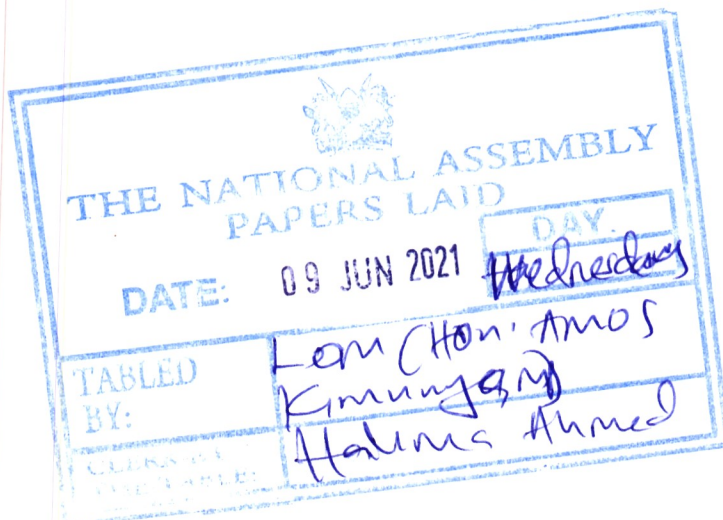 THE NATIONAL ASSEMBLY
PAPERS LAID
DATE: 09 JUN 2021
DAY.
Wednesday
TABLED
BY:
LOM (Hon. Amos
Kimunya, MP)
CLERK AT
THE TABLE:
Halima Ahmed